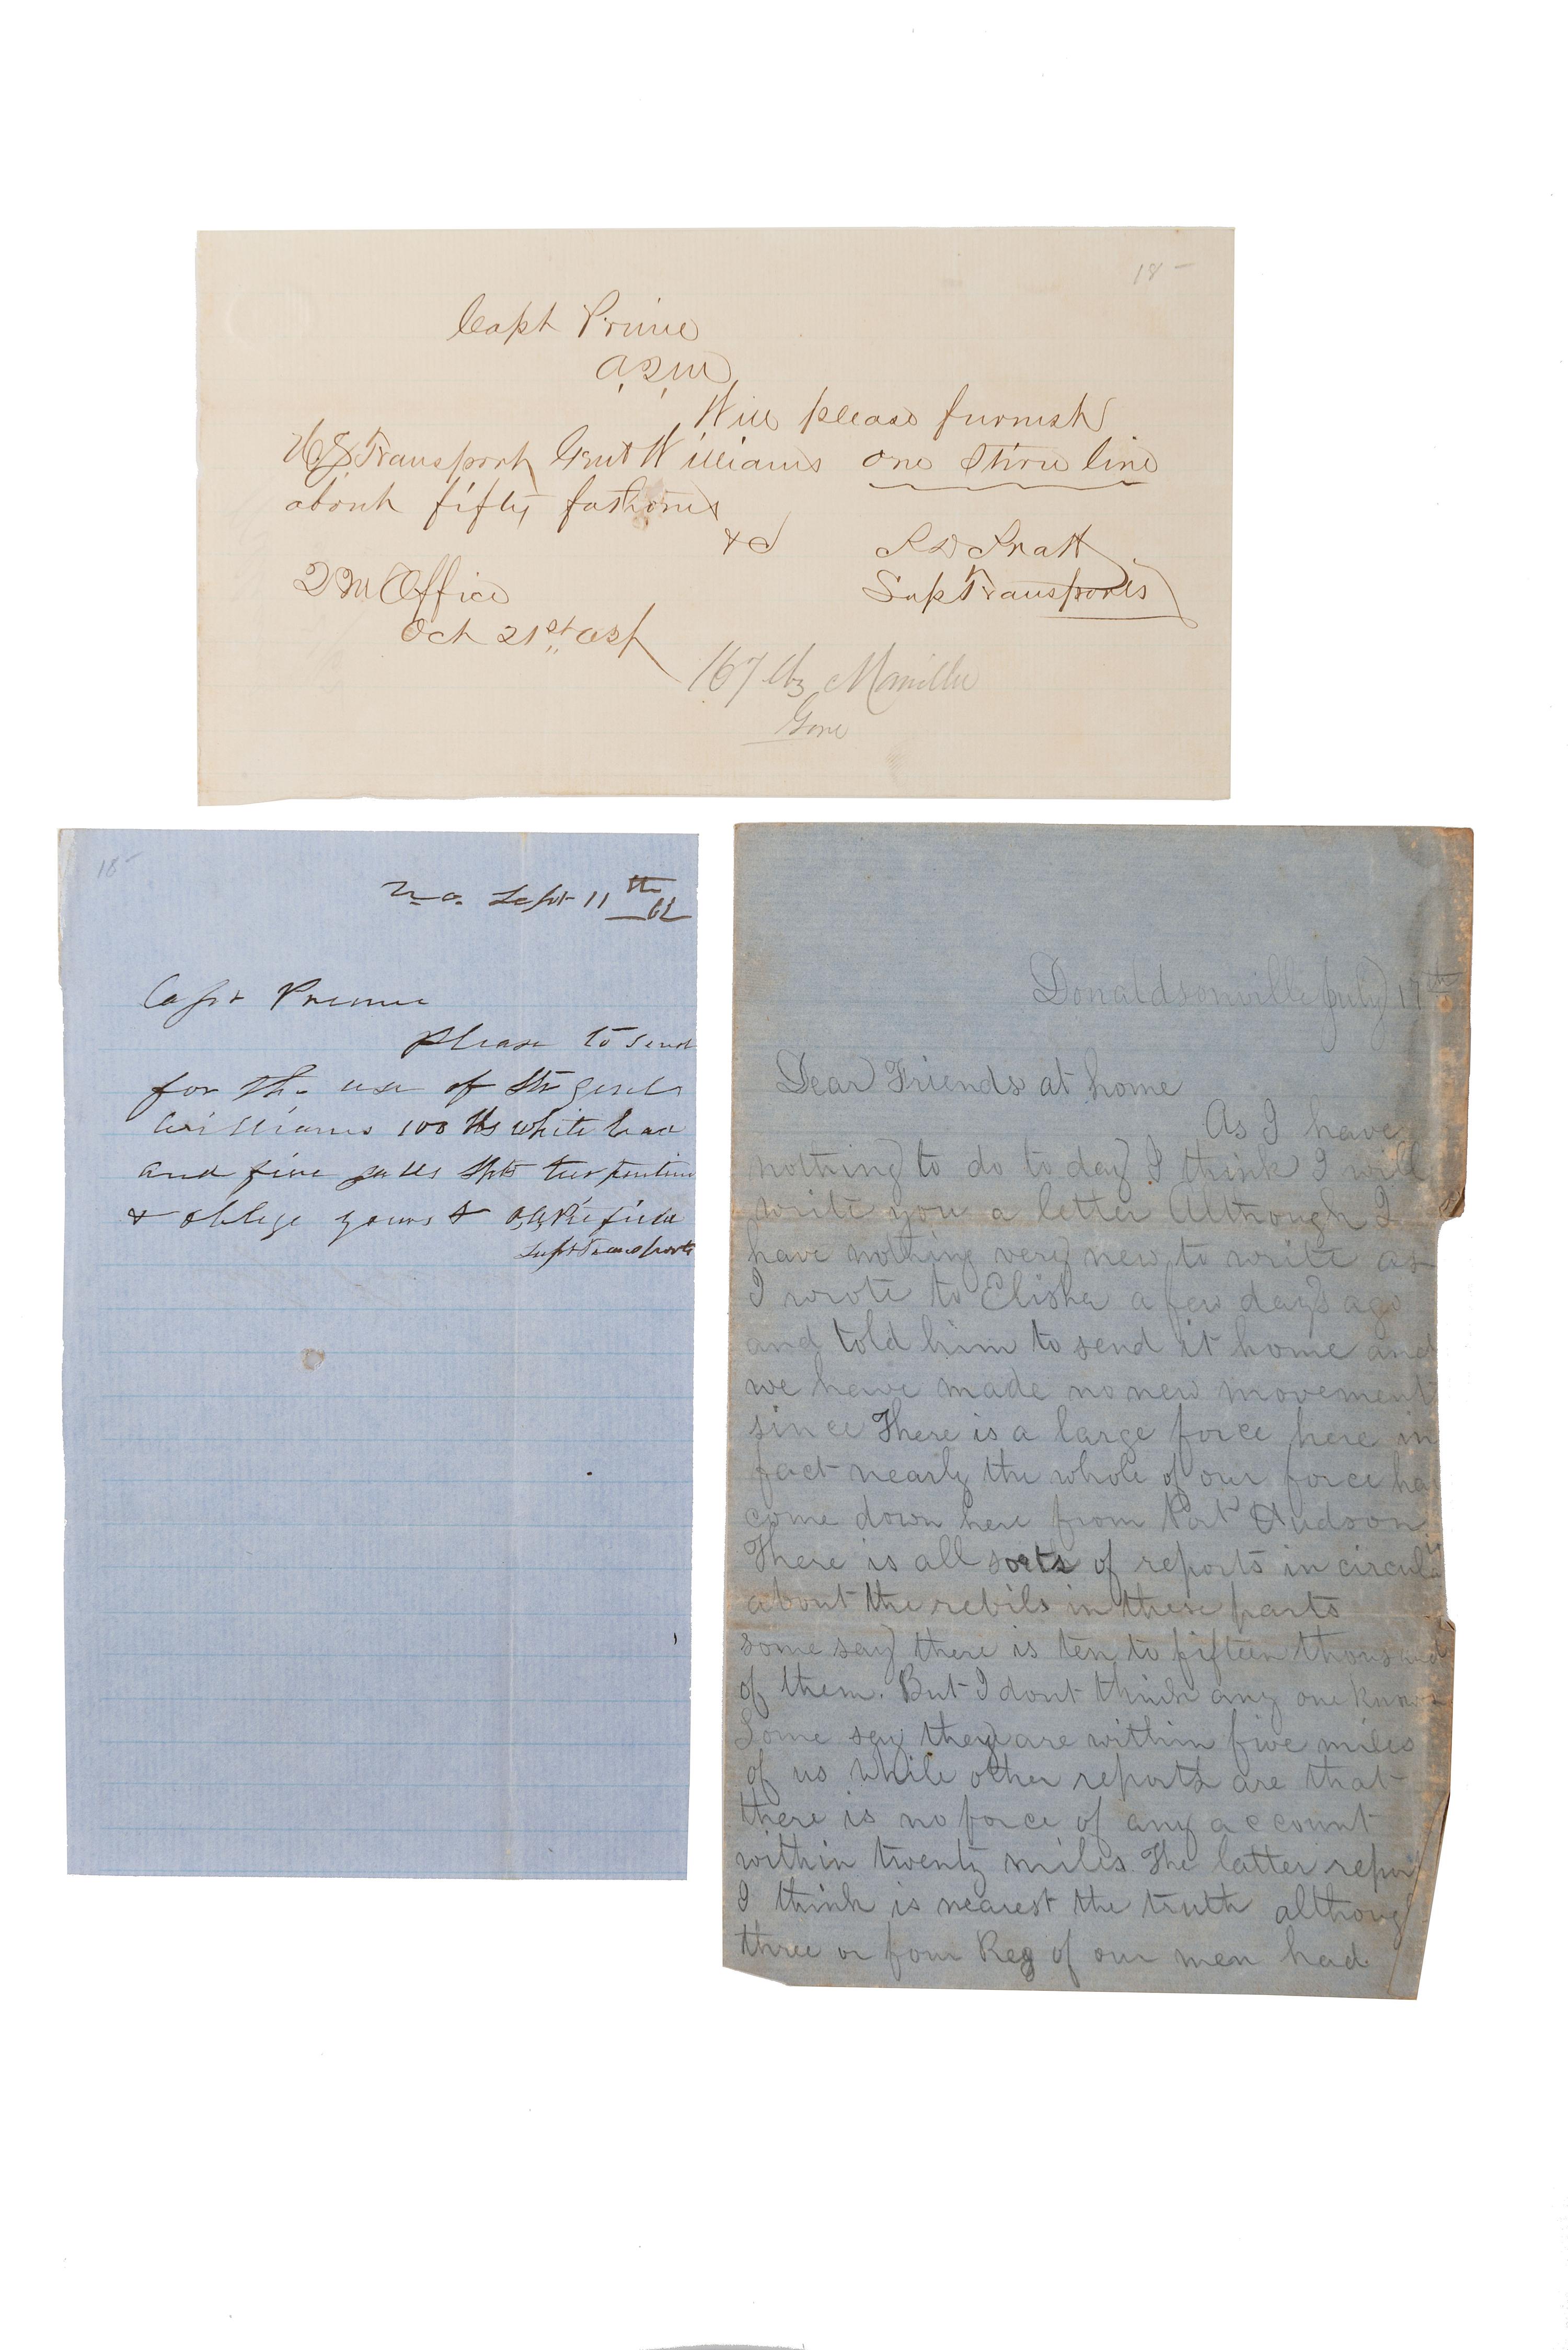 18-
Capt Prime
A.Q.M
Will please furnish
US Transport Genl Williams one line
about fifty fathoms
&c
Pratt
Q M Office
Supt Transports
Oct 21st
167 lbs Manilla
Gone
18-
N.O. Sept 11th 62
Capt Prime
Please to send
for the use of Str Genl
Williams 100 lbs white lead
and five galls spts turpentine
& oblige yours &
Supt Transports
Donaldsonville July 17th
Dear Friends at home
As I have
nothing to do to day I think I will
write you a letter Although I
have nothing very new to write as
I wrote to Elisha a few days ago
and told him to send it home and
we have made no new movement
since There is a large force here in
fact nearly the whole of our force ha
come down here from Port Hudson
There is all sorts of reports in circula
about the rebils in these parts
some say there is ten to fifteen thousand
of them. But I dont think any one knows
Some say they are within five miles
of us while other reports are that
there is no force of any account
within twenty miles The latter repor
I think is nearest the truth althoug
three or four Reg of our men had